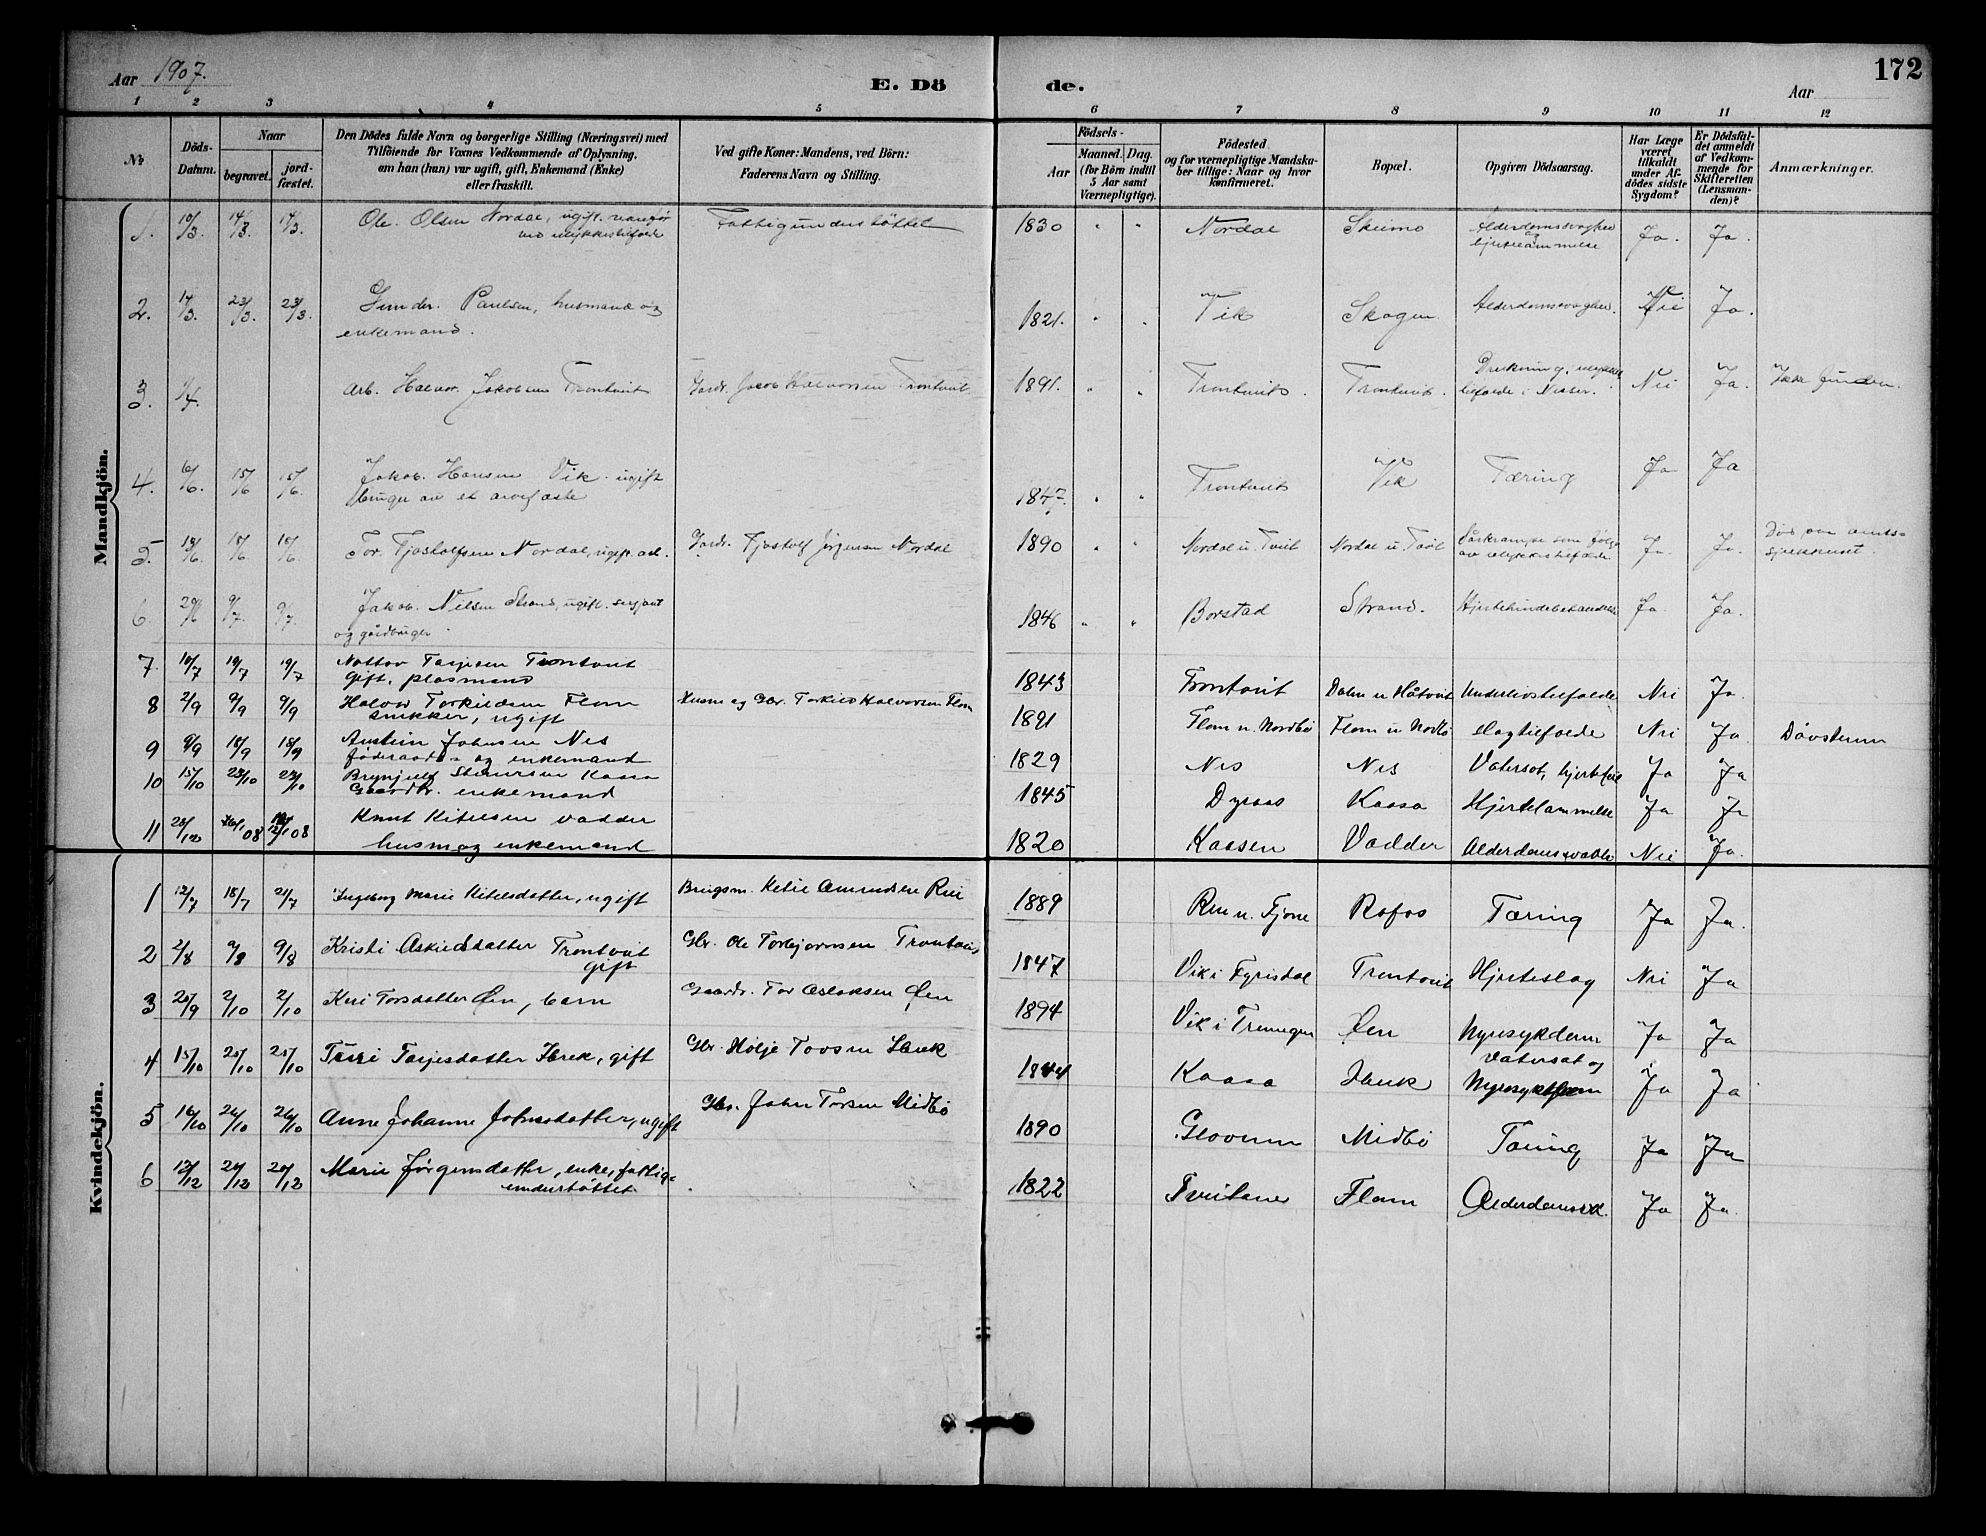 172
Aar 1907.
E. Dö
de.
Aar
1 2 3 4 5 6 7 8 9 10 11 12
No
Döds-Datum.
Naar
begravet.
jord-fæstet.
Den Dödes fulde Navn og borgerlige Stilling (Næringsvei) med
Tilföiende for Voxnes Vedkommende af Oplysning,
om han (hun) var ugift, gift, Enkemand (Enke)
eller fraskilt.
Ved gifte Koner: Mandens, ved Börn:
Faderens Navn og Stilling.
Födsels-
Aar
Maaned. Dag.
(for Börn indtil
5 Aar samt
Værnepligtige).
Födested
og for værnepligtige Mandska-
ber tillige: Naar og hvor
konfirmeret.
Bopæl.
Opgiven Dödsaarsag.
Har Læge
været
tilkaldt
under Af-
dödes sidste
Sygdom?
Er Dödsfal-
det anmeldt
af Vedkom-
mende for
Skifteretten
(Lensman-
den)?
Anmærkninger.
Mandkjön.
1. 10/3. 14/3. 14/3. Ole Olsen Nordal, ugift, vanfør
ved ulykkestilfælde
Fattigunderstøttet 1830 " " Nordal Skeimo Alderdomssvaghed
og hjertelammelse Ja. Ja.
2. 14/3. 23/3. 23/3. Gunder Paulsen, husmand og
enkemand. 1821. " " Vik Skogen Alderdomssvaghed. Nei Ja.
3. 1/4. Arb. Halvor Jakobsen Trontveit Gardr. Jacob Halvorsen Trontveit 1891. " " Trontveit. Trontveit. Drukning, ulykkes
tilfælde i Nisser. Nei Ja. Ikke funden.
4. 6/6. 15/6 15/6. Jakob Hansen Vik ugift
bruger av et arvefæste 1847. " " Trontveit Vik Tæring Ja Ja
5. 10/6. 15/6. 15/6. Tor Tjostolfsen Nordal, ugift, arb. Gardr. Tjostolf Jørgensen Nordal 1890 " " Nordal u. Tveit Nordal u. Tveit som følge
av ulykkestilfælde. Ja. Ja. Død paa amts-
sykehuset.
6. 29/6 9/7. 9/7. Jakob Nilsen Strand, ugift. serjant
og gårdbruger. 1846 " " Borstad Strand. Ja. Ja.
7. 10/7 19/7 19/7 Nottov Tarjesen Trontveit
gift, plasmand 1843 Trontvit Dalen u Håtveit Underlivstilfælde Nei Ja.
8 2/9 9/9 9/9 Halvor Torkildsen Flom
snikker, ugift Husm og Torkild Halvorsen Flom 1891 Flom u. Nordbø Flom u Nordbø slagtilfælde Nei Ja Døvstum
9 9/9 18/9 18/9 Austein Johnsen Nes
føderaads- og enkemand 1829 Nes Nes Vatersot, hjertefeil Ja Ja
10 15/10 23/10 23/10 Brynjulf Steinarsen Kaasa
Gaardbr. enkemand 1845 Dyraas Kaasa Hjertelammelse Ja Ja
11 28/12 08 12/1 08 Knut Kitelsen Vadder
husm og enkemand 1820 Kaasen Vadder Alderdomssvakhed Nei Ja.
Kvindekjön.
1 12/7 18/7 21/7 Ingeborg Marie Kitelsdatter, ugift Brugsm. Ketil Amundsen Rui 1889 Rui u. Fjone Rofos Tæring Ja Ja.
2 2/8 9/8 9/8 Kristi Askildsdatter Trontveit
gift Gbr. Ole Torbjørnsen Trontveit 1847 Vik i Fyrisdal Trontveit Hjerteslag Nei Ja
3 20/9 2/10 2/10 Kari Torsdatter Øen, barn Gaardbr. Tor Aslaksen Øen 1894 Vik i Treungen Øen Nyresykdom Ja Ja
4 15/10 25/10 25/10 Tarjesdatter gift Gbr. Hølje Tovsen 1844 Kaasa Vatersot og
Nyresykdom Ja Ja
5 16/10 26/10 26/10 Anne Johanne Johnsdatter, ugift Gbr. John Torsen Midbø 1890 Midbø Tæring Ja Ja
6 12/12 20/12 20/12 Marie Jørgensdatter, enke, fattig-
understøttet 1822 Tveitane Flom Alderdomssv. Ja Ja.